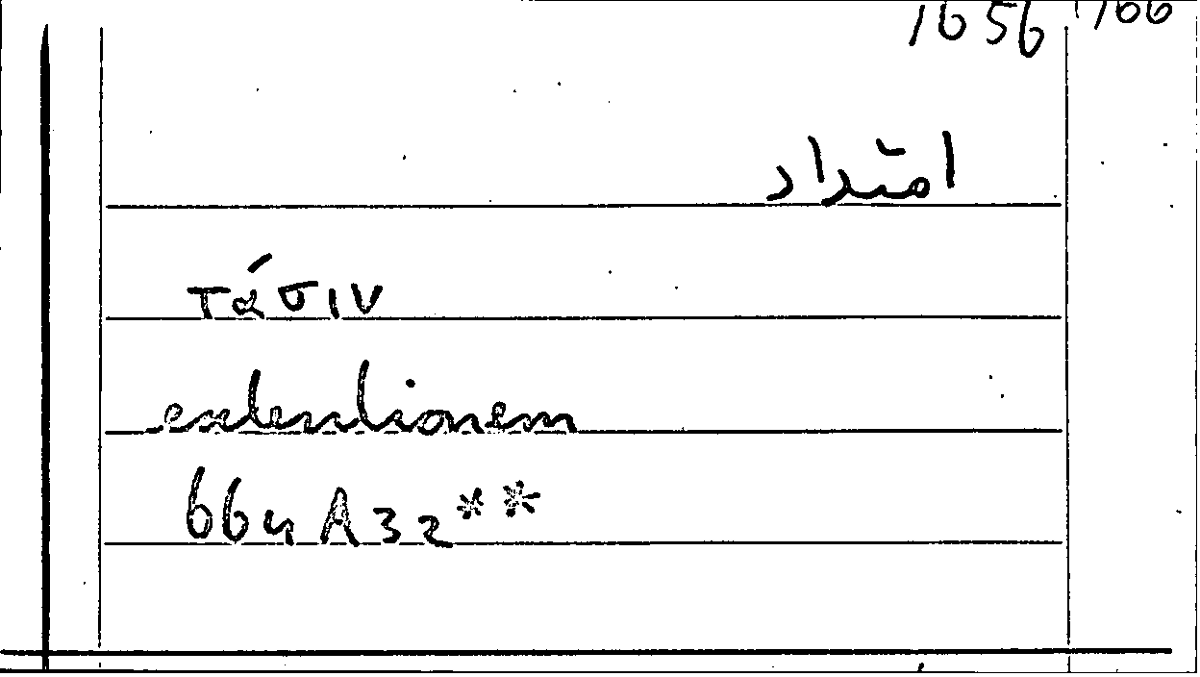 1656
امتداد
τάσιν
extentionem
664 A 32**